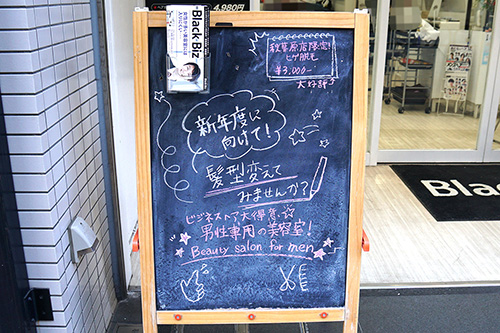 4,980円
Black Biz
秋葉原店限定!
ヒゲ脱毛
¥3,000-
大好評♪
新年度に
向けて!
髪型変えて
みませんか?
ビジネスヘア大得意☆
男性専用の美容室!
Beauty salon for men
Bla
Black Biz